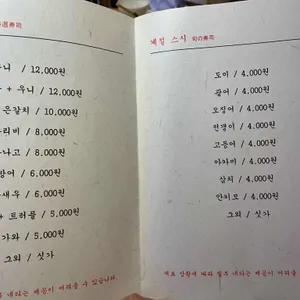 選寿司
니 / 12,000원
+ 우니 / 12,000원
은갈치 / 10,000원
리비 / 8,000원
나고 / 8,000원
방어 / 6,000원
새우 / 6,000원
+ 트러플 / 5,000원
가와 / 5,000원
그외 / 싯가
내리는 제품이 어려울 수 있습니다.
계절 스시 旬の寿司
도미 / 4,000원
광어 / 4,000원
오징어 / 4,000원
전갱이 / 4,000원
고등어 / 4,000원
아까미 / 4,000원
삼치 / 4,000원
안치모 / 4,000원
그외 / 싯가
재료 상황에 따라 일부